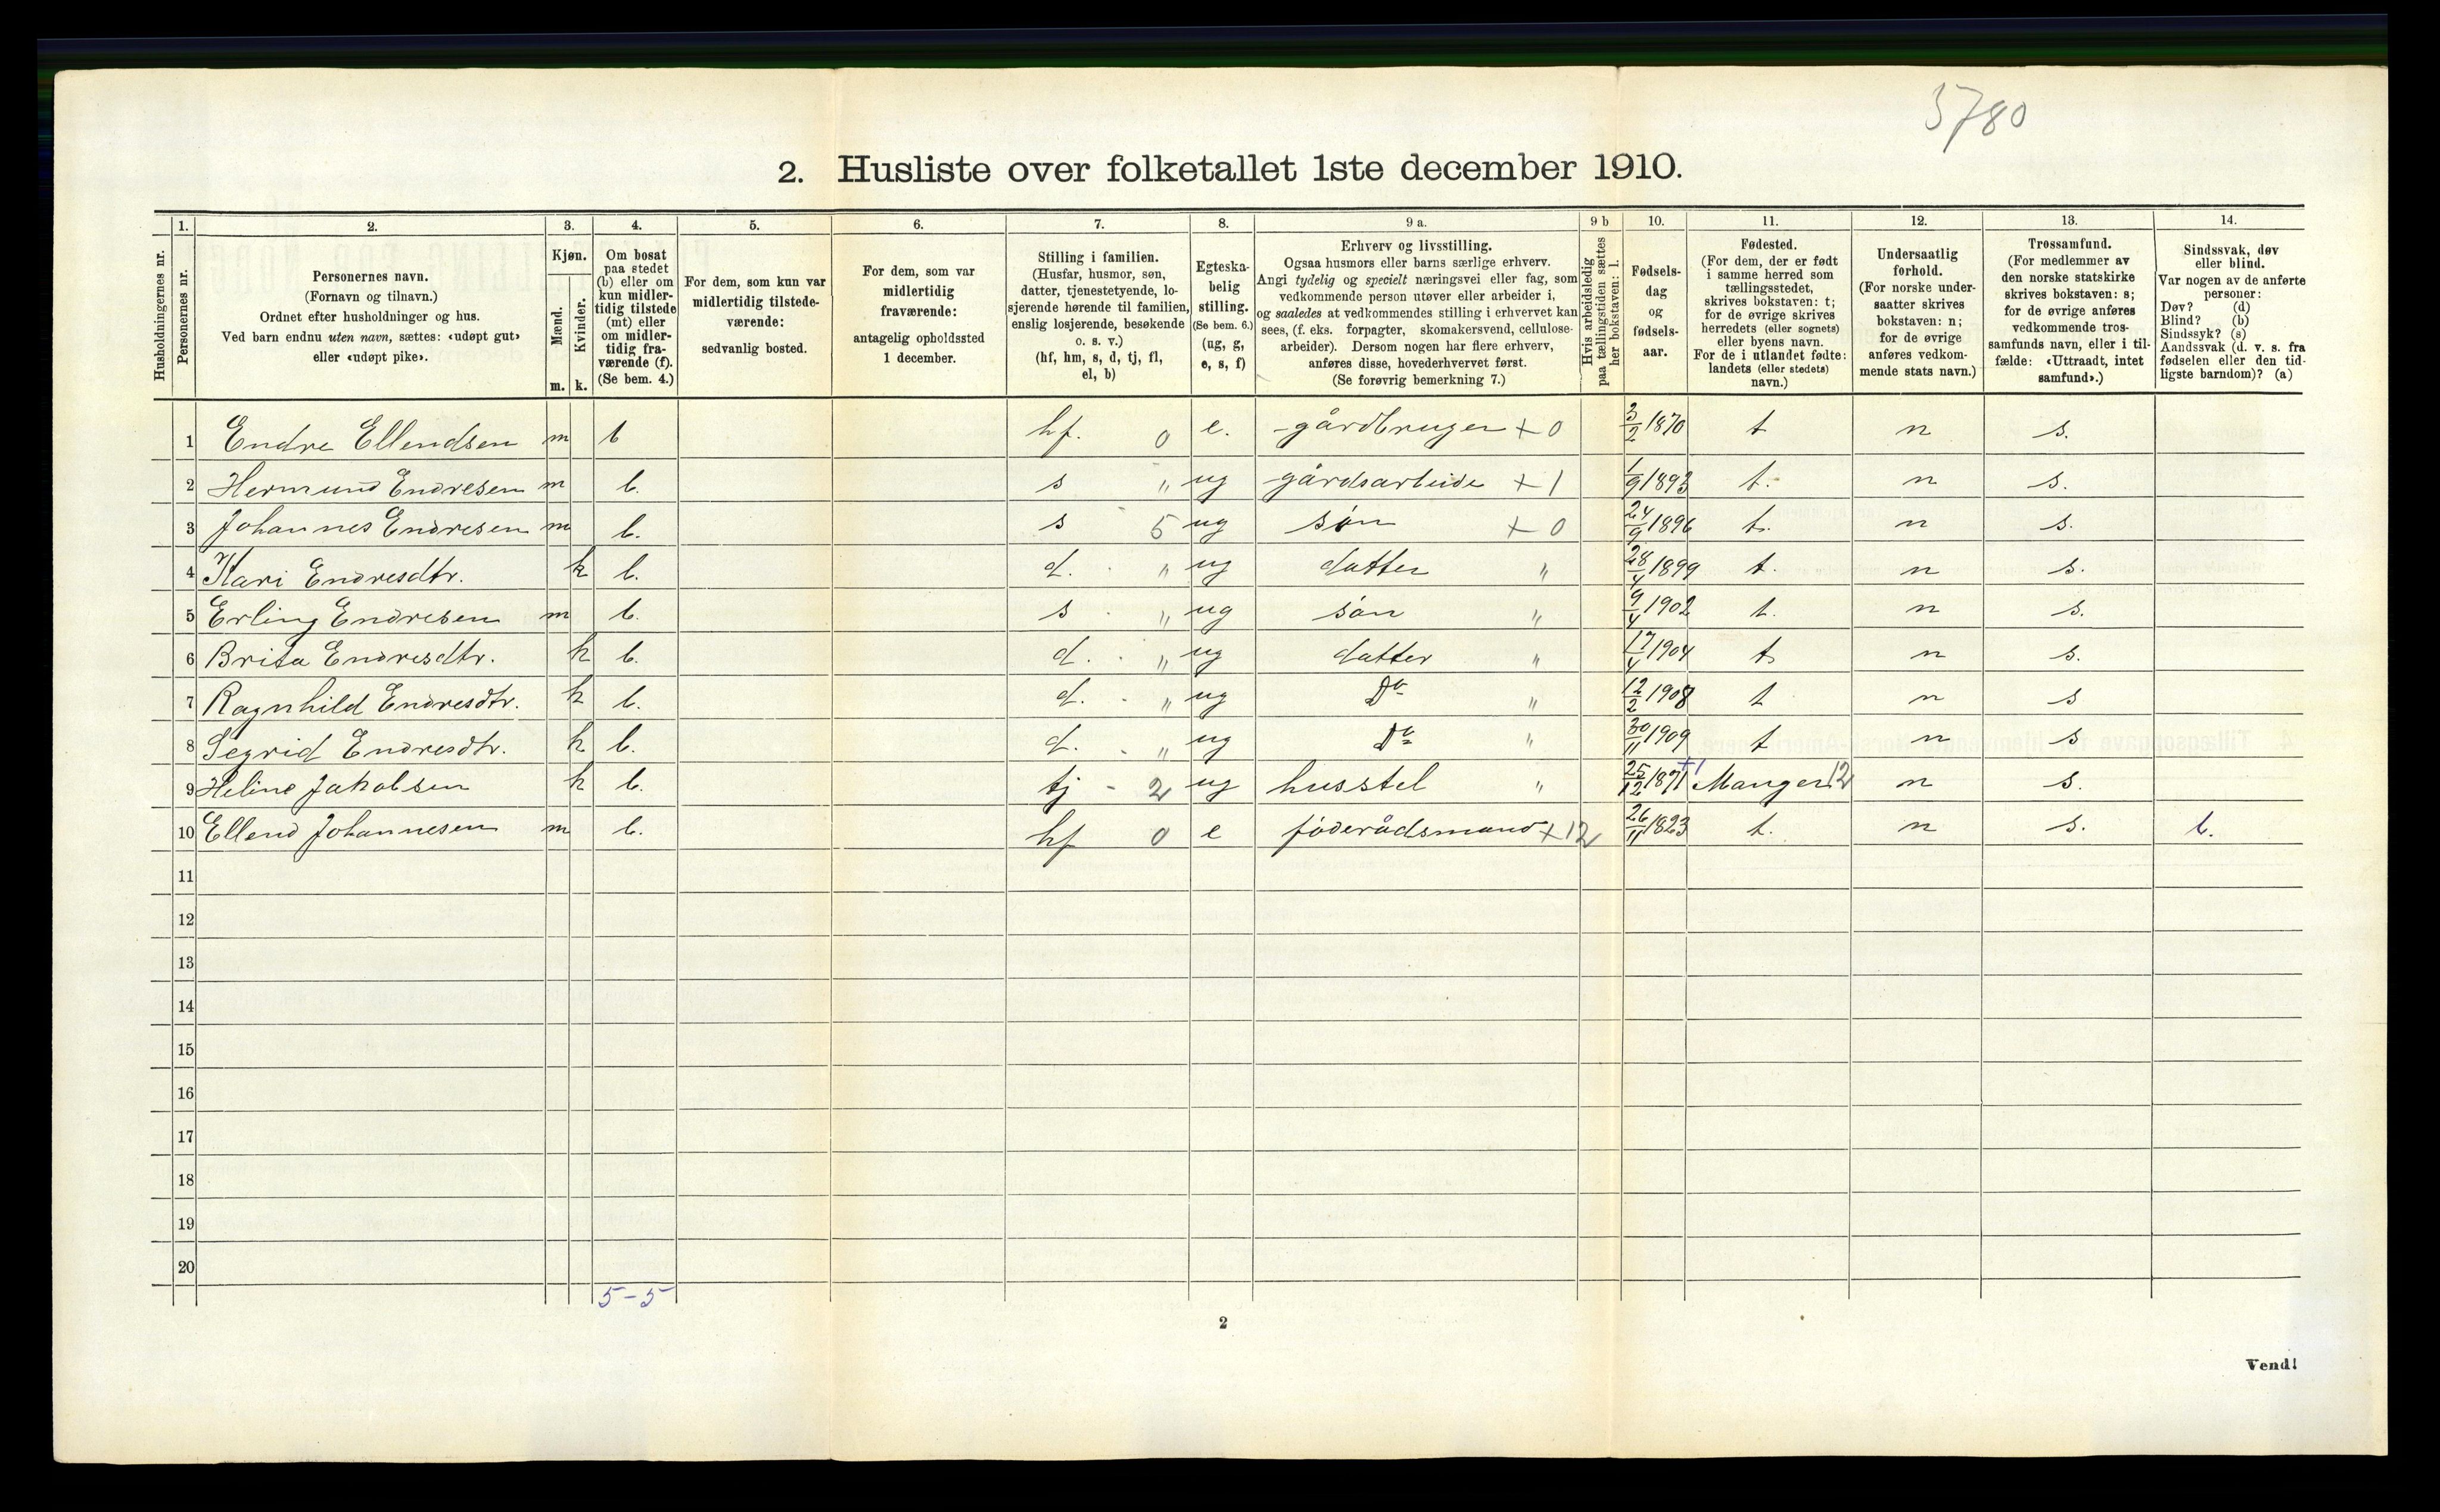 3780
2. Husliste over folketallet 1ste december 1910.
1. 2. 3. 4. 5. 6. 7. 8. 9 a. 9 b 10. 11. 12. 13. 14.
Husholdningernes nr.
Personernes nr.
Personernes navn.
(Fornavn og tilnavn.)
Ordnet efter husholdninger og hus.
Ved barn endnu uten navn, sættes: «udøpt gut»
eller «udøpt pike».
Kjøn.
Mænd.
Kvinder.
m. k.
Om bosat
paa stedet
(b) eller om
kun midler-
tidig tilstede
(mt) eller
om midler-
tidig fra-
værende (f).
(Se bem. 4.)
For dem, som kun var
midlertidig tilstede-
værende:
sedvanlig bosted.
For dem, som var
midlertidig
fraværende:
antagelig opholdssted
1 december.
Stilling i familien.
(Husfar, husmor, søn,
datter, tjenestetyende, lo-
sjerende hørende til familien,
enslig losjerende, besøkende
o. s. v.)
(hf, hm, s, d, tj, fl,
el, b)
Egteska-
belig
stilling.
(Se bem. 6.)
(ug, g,
e, s, f)
Erhverv og livsstilling.
Ogsaa husmors eller barns særlige erhverv.
Angi tydelig og specielt næringsvei eller fag, som
vedkommende person utøver eller arbeider i,
og saaledes at vedkommendes stilling i erhvervet kan
sees, (f. eks. forpagter, skomakersvend, cellulose-
arbeider). Dersom nogen har flere erhverv,
anføres disse, hovederhvervet først.
(Se forøvrig bemerkning 7.)
Hvis arbeidsledig
paa tællingstiden sættes
her bokstaven: l.
Fødsels-
dag
og
fødsels-
aar.
Fødested.
(For dem, der er født
i samme herred som
tællingsstedet,
skrives bokstaven: t;
for de øvrige skrives
herredets (eller sognets)
eller byens navn.
For de i utlandet fødte:
landets (eller stedets)
navn.)
Undersaatlig
forhold.
(For norske under-
saatter skrives
bokstaven: n;
for de øvrige
anføres vedkom-
mende stats navn.)
Trossamfund.
(For medlemmer av
den norske statskirke
skrives bokstaven: s;
for de øvrige anføres
vedkommende tros-
samfunds navn, eller i til-
fælde: «Uttraadt, intet
samfund».)
Sindssvak, døv
eller blind.
Var nogen av de anførte
personer:
Døv? (d)
Blind? (b)
Sindssyk? (s)
Aandssvak (d. v. s. fra
fødselen eller den tid-
ligste barndom)? (a)
1 Endre Ellendsen m b hf. 0 e. gårdbruger + 0 3/2 1870 t n s.
2 Hermund Endresen m b. s " ug gårdsarbeide + 1 1/9 1893 t. n s.
3 Johannes Endresen m b. s 5 ug søn + 0 24/9 1896 t. n s.
4 Kari Endresdtr. k b. d. " ug datter " 28/4 1899 t. n s.
5 Erling Endresen m b. s " ug søn " 9/4 1902 t. n s.
6 Brita Endresdtr. k b. d. " ug datter " 17/4 1904 t. n s.
7 Ragnhild Endresdtr. k b. d. " ug Do " 12/2 1908 t n s
8 Segrid Endresdtr. k b. d. " ug Do " 30/11 1909 t n s
9 Heline Jakobsen k b. tj - 2 ug husstel " 25/12 1871 +1 Manger 12 n s.
10 Ellend Johannesen m b. hf 0 e føderådsmand + 12 26/11 1823 t. n s. b.
11
12
13
14
15
16
17
18
19
20
5-5
2
Vend!